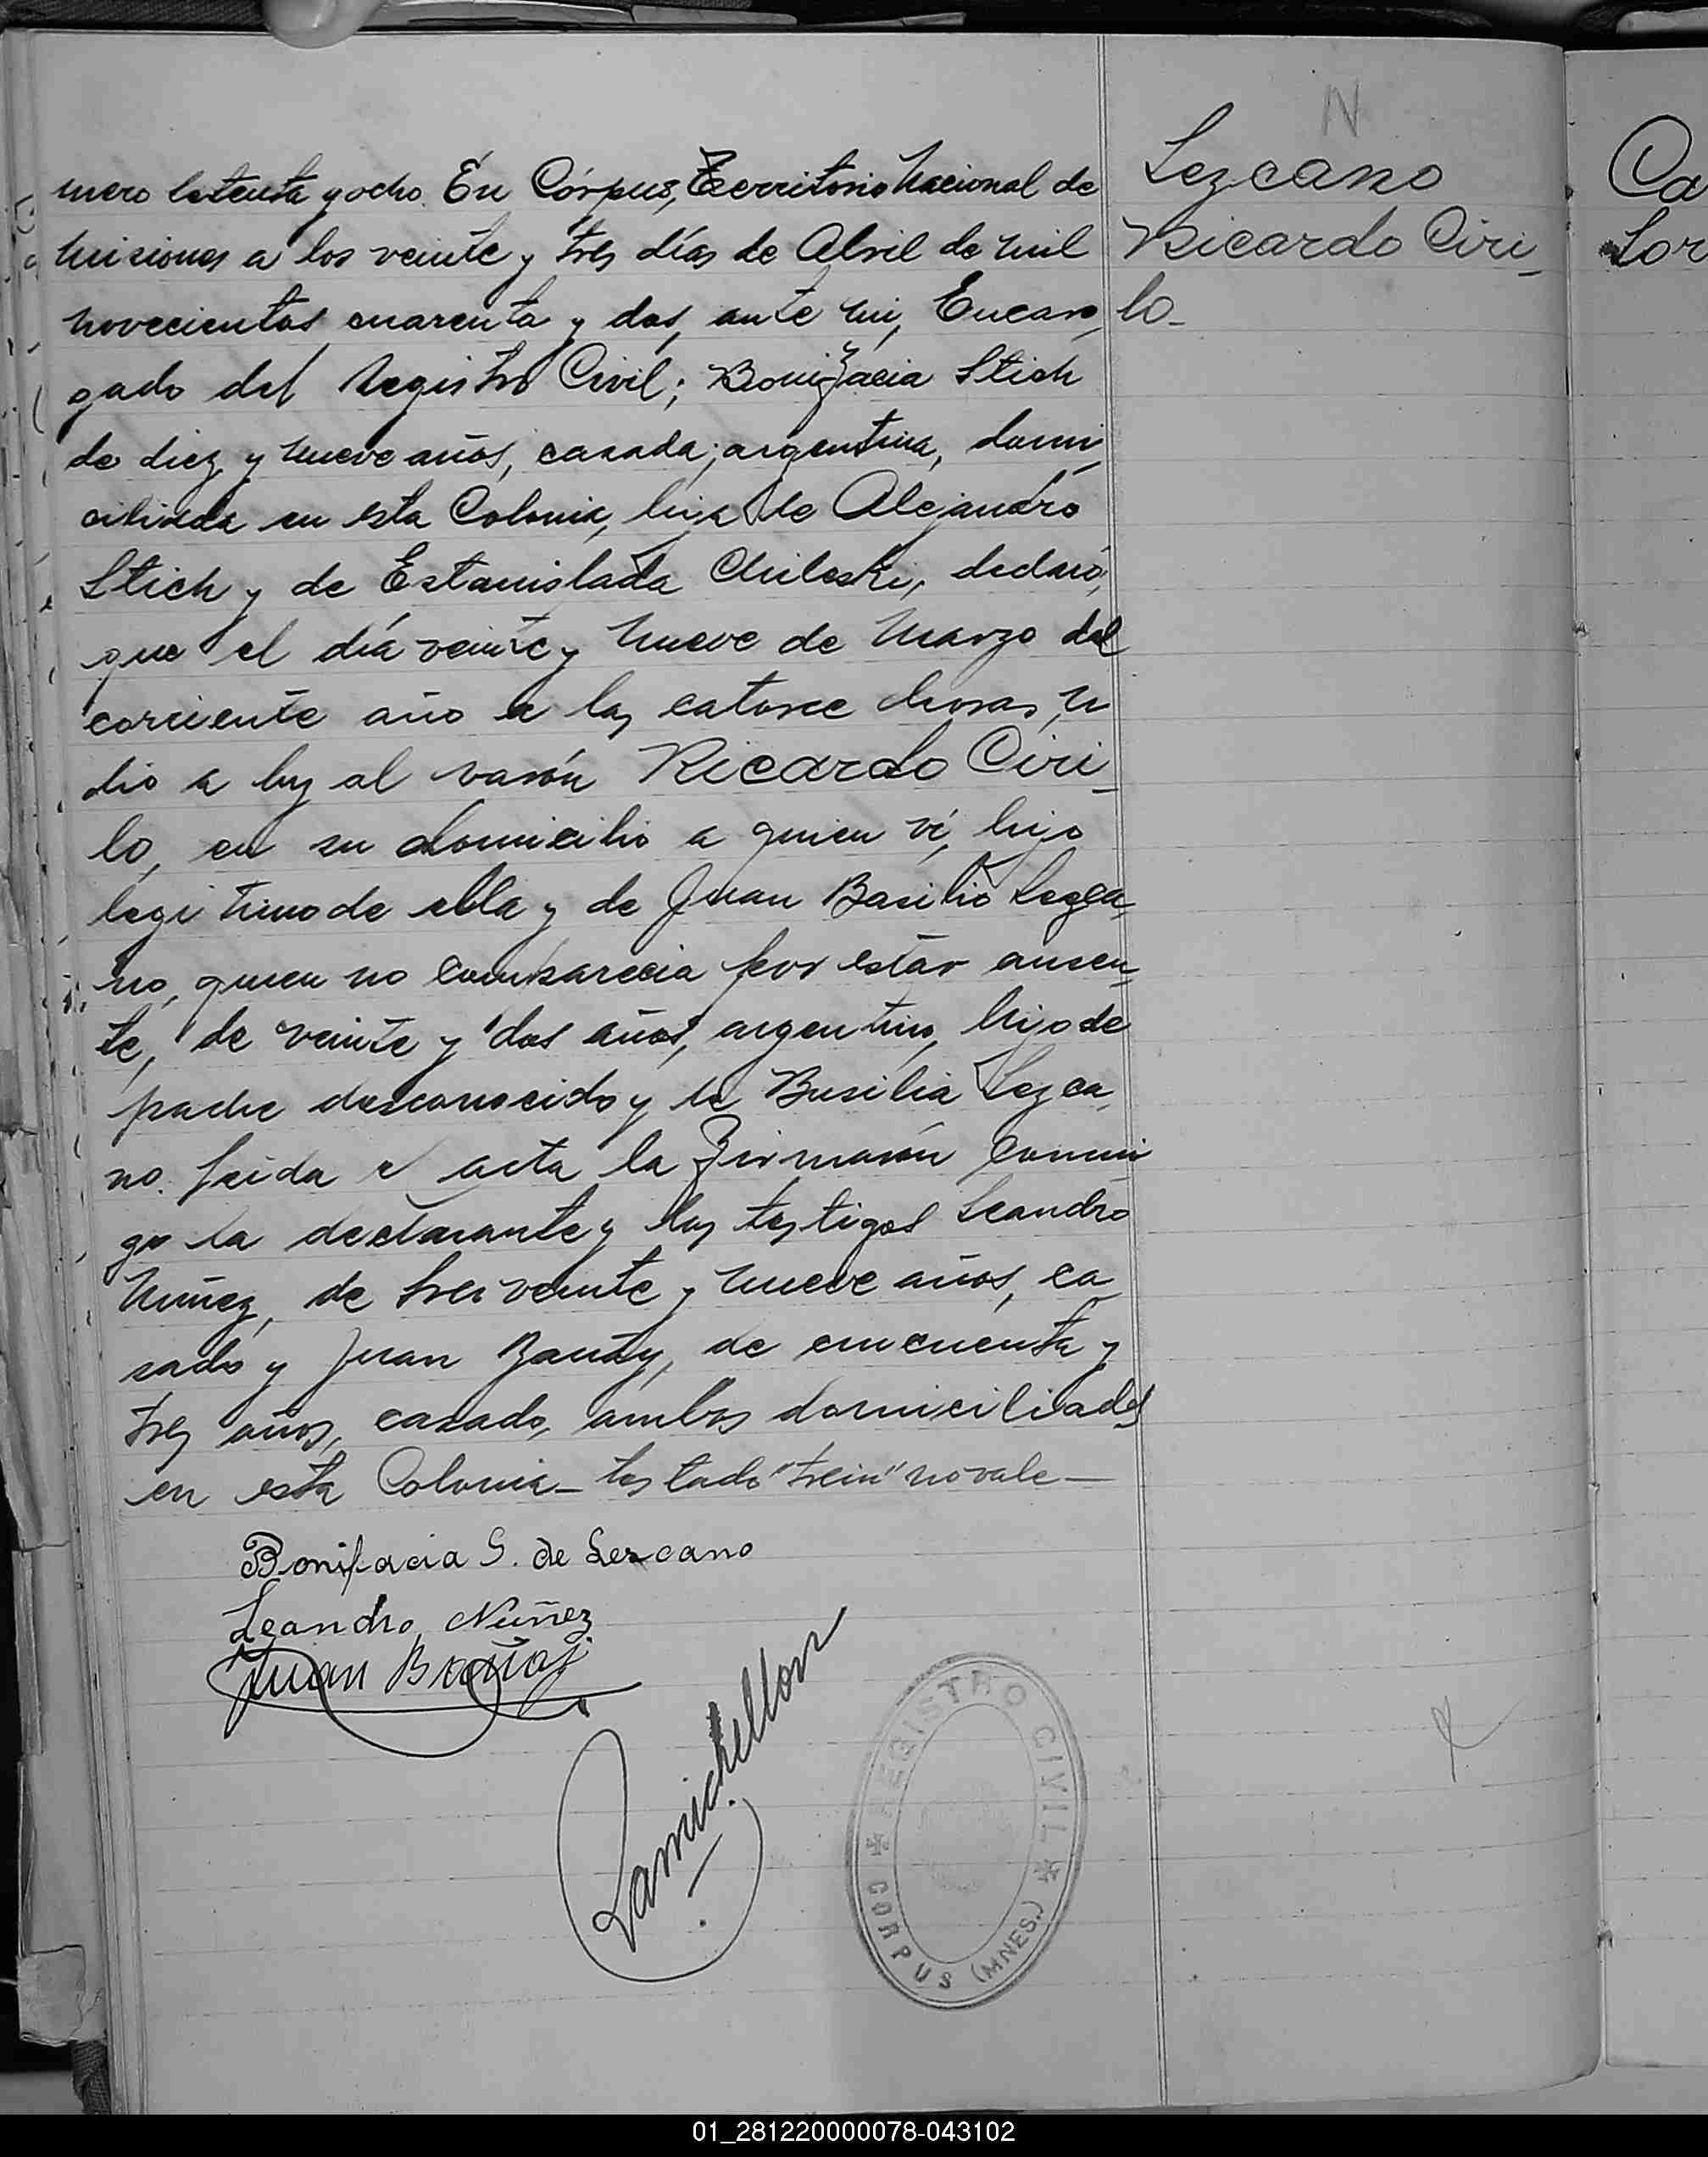 N
Lezcano
Ricardo Ciri_
lo_
mero setenta y ocho. En Córpus, Territorio Nacional de
Misiones a los veinte y tres días de Abril de mil
novecientos cuarenta y dos, ante mi, Encar
gado del Registro Civil; Bonifacia Stich
de diez y nueve años, casada, argentina, domi
ciliada en esta Colonia, hija de Alejandro
Stich y de Estanislada Chileski, declaró,
que el día veinte y nueve de Marzo del
corriente año a las catorce horas,
dio a luz al varón Ricardo Ciri_
lo, en su domicilio a quien ví, hijo
legitimo de ella y de Juan Basilio Lezca
no, quien no comparecia por estar ausen
te, de veinte y dos años, argentino, hijo de
padre desconocido y de Basilia Lezca
no. Leida el acta la firmarón conmi
go la declarante y los testigos Leandro
Nuñez, de trei veinte y nueve años, ca
sado y Juan de cincuenta y
tres años, casado, ambos domiciliados
en esta Colonia_ testado "trein" no vale_
Bonifacia S. de Lezcano
Leandro Nuñez
Juan
REGISTRO CIVIL
CORPUS (MNES.)
Ca
Lor
01_281220000078-043102